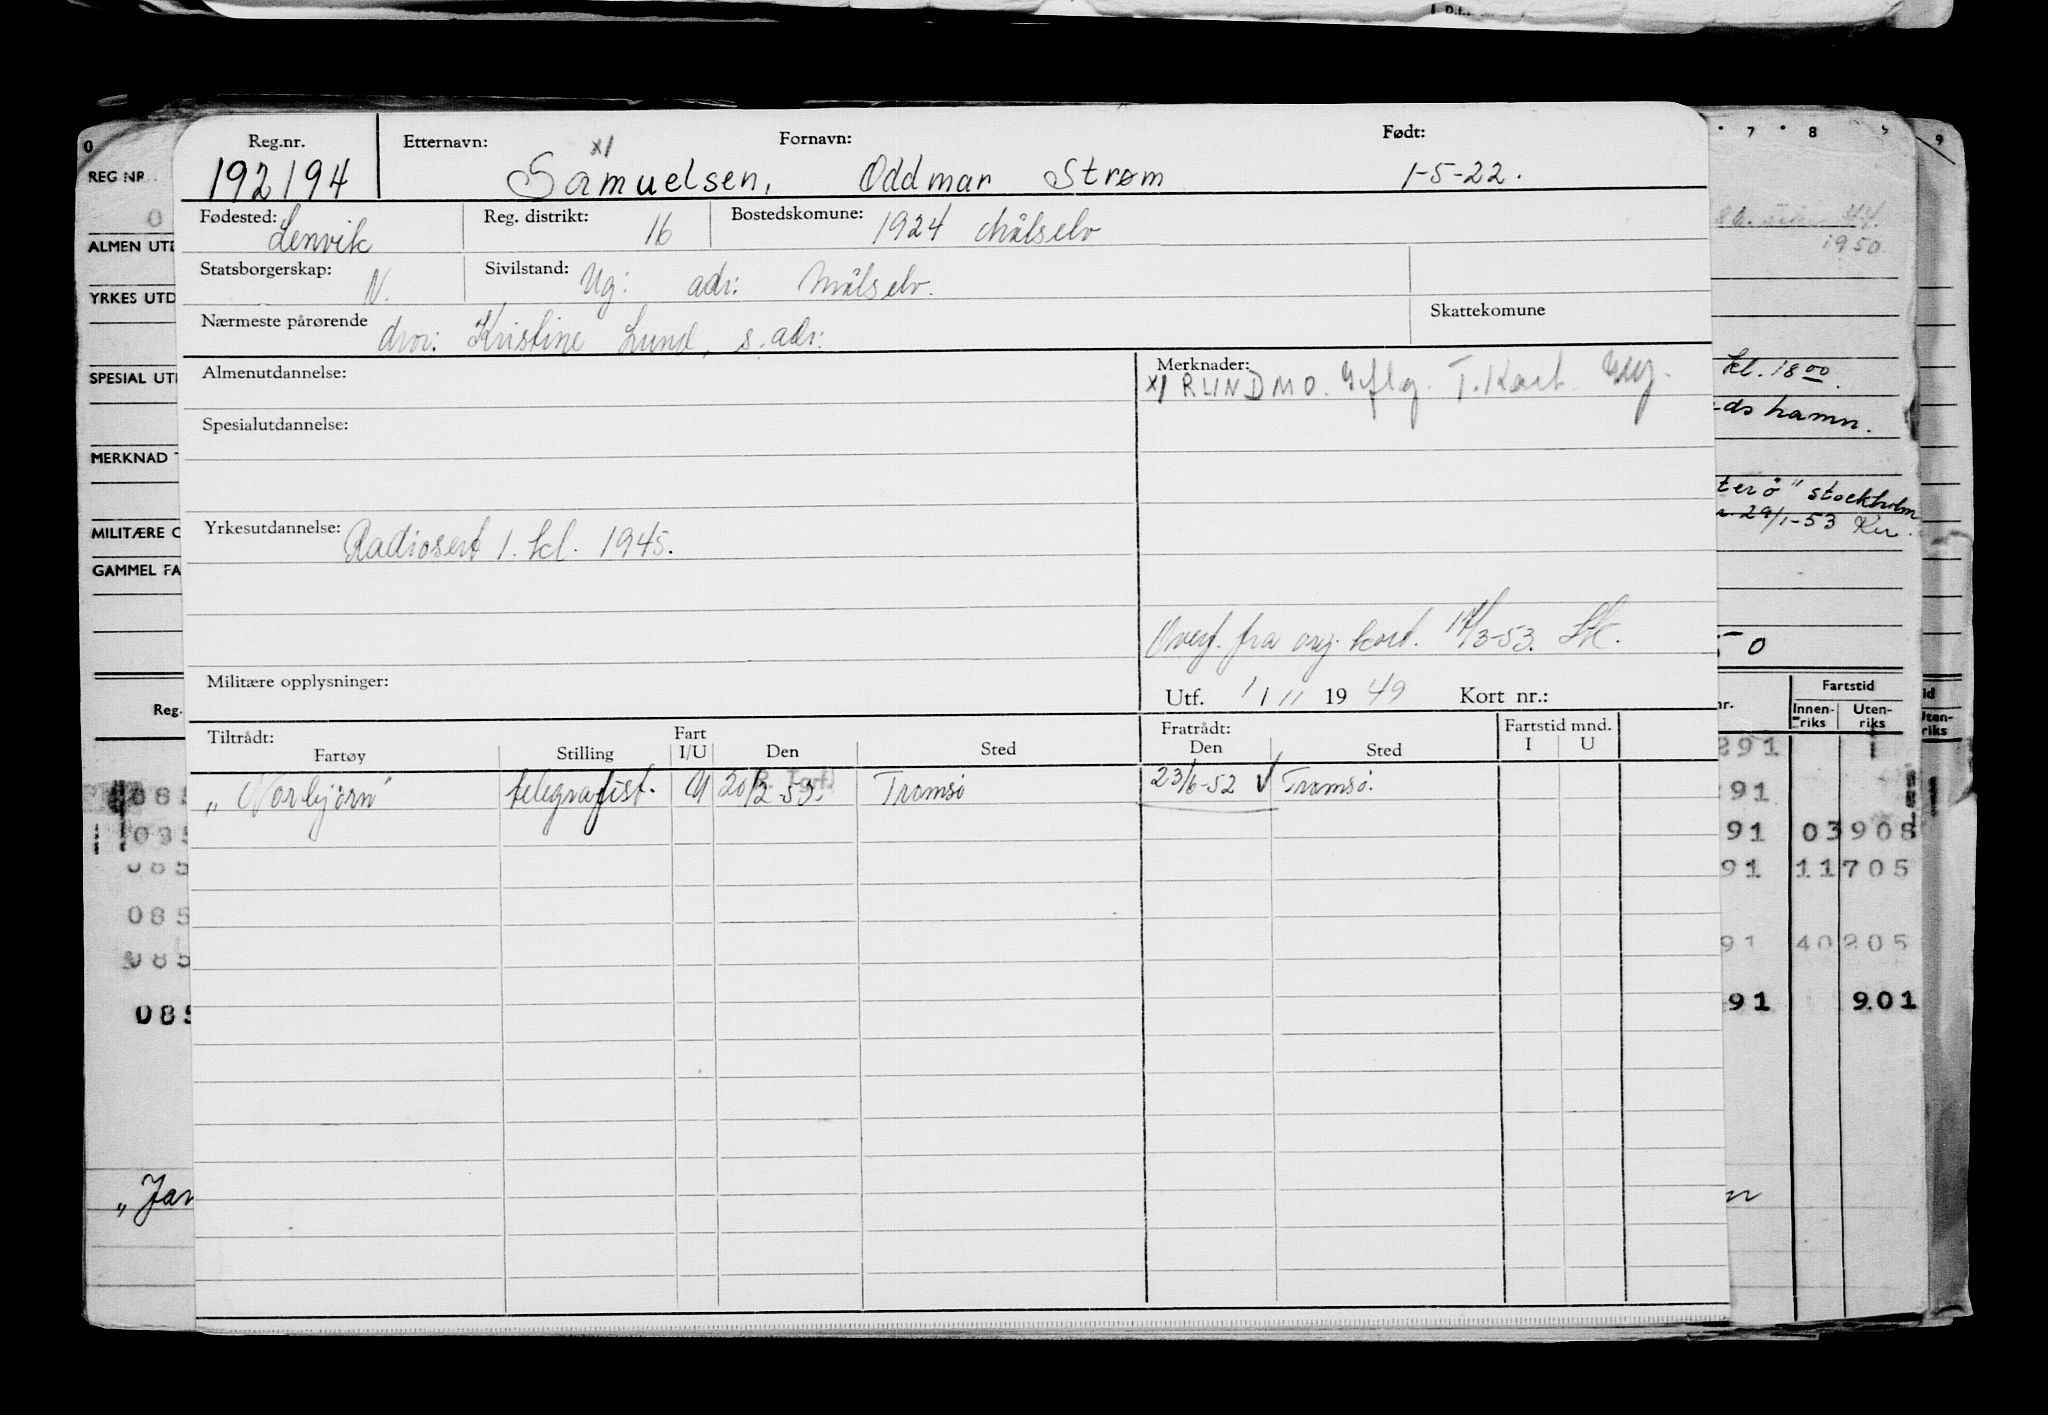 Reg.nr. Etternavn: x) Fornavn: Født:
192194 Samuelsen, Oddmar Strøm 1-5-22.
Fødested: Lenvik Reg. distrikt: 16 Bostedskomune: 1924 Målselv
Statsborgerskap: N. Sivilstand: Ug: adr: Målselv.
Nærmeste pårørende Kristine Lund, s. adr: Skattekomune
Almenutdannelse: Merknader:
x) RUNDMO. Iflg. T. Kort.
Spesialutdannelse:
Yrkesutdannelse: Radiosert 1. kl. 1945.
Overf. fra orig. kort. /3-53.
Militære opplysninger: Utf. 1/11 1949 Kort nr.:
Tiltrådt: Fratrådt: Fartstid mnd.
Fartøy Stilling Fart I/U Den Sted Den Sted I U
"Norbjørn" telegrafist. U 20/2-53. Tromsø 23/6-52 Tromsø.
0 7 8 9
REG NR.
ALMEN UTD
1950.
YRKES UTD
SPESIAL UT
kl. 18 00.
ds hamn.
MERKNAD
terö" stockholm
29/1-53
MILITÆRE O
GAMMEL FA
50
Reg. nr. Fartstid
Innenriks Utenriks
291
085 291
085 91 03908
085 91 11705
085
085 91 40205
085 91 9.01
"Jan